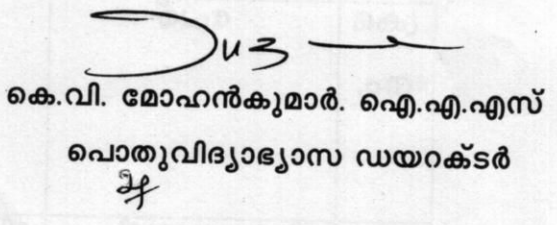 കെ.വി. മോഹൻകുമാർ. ഐ.എ.എസ്
പൊതുവിദ്യാഭ്യാസ ഡയറക്ടർ